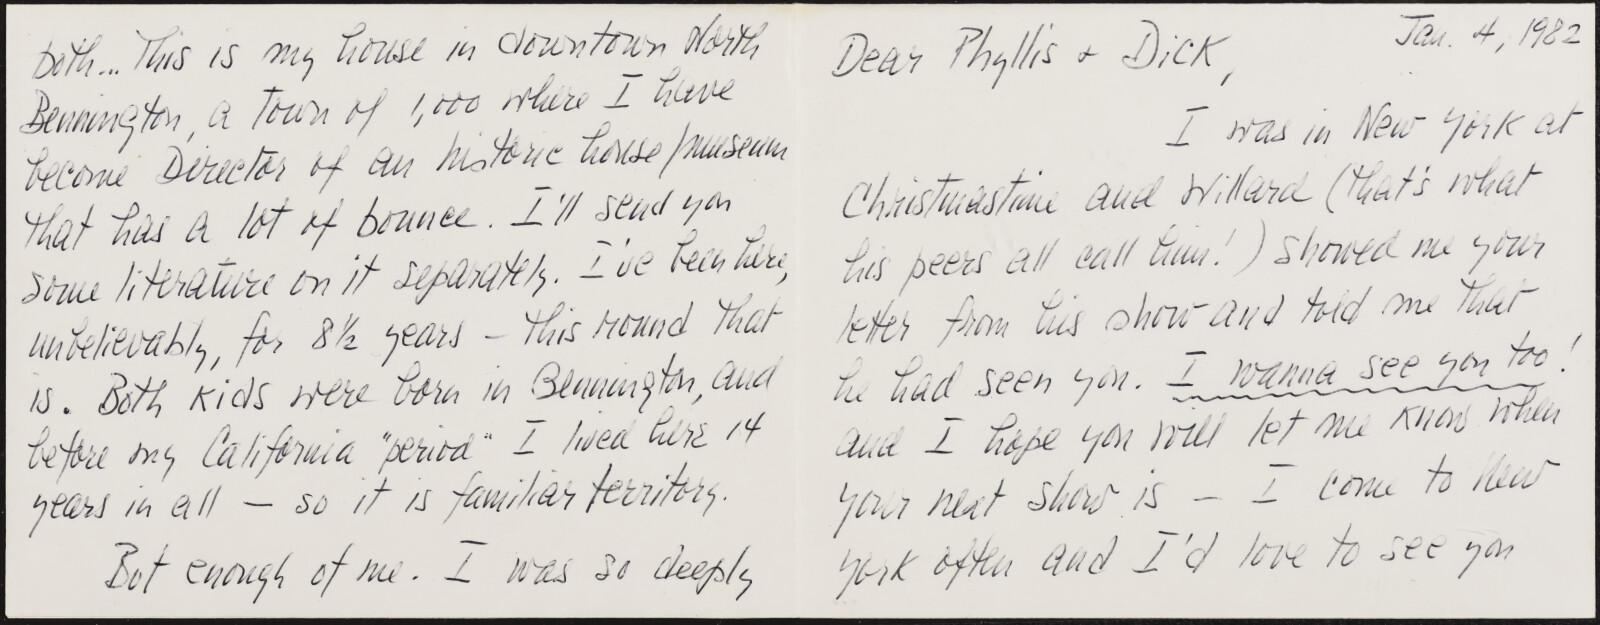 Jan. 4, 1982
Dear Phyllis & Dick,
I was in New York at
Christmastime and Willard (that's what
his peers all call him!) showed me your
letter from his show and told me that
he had seen you. I wanna see you too!
and I hope you will let me know when
your next show is – I come to New
York often and I'd love to see you
both... This is my house in downtown North
Bennington, a town of 1,000 where I have
become Director of an historic house/museum
that has a lot of bounce. I'll send you
some literature on it separately. I've been here,
unbelievably, for 8½ years – this round that
is. Both kids were born in Bennington, and
before my California "period" I lived here 14
years in all – so it is familiar territory.
But enough of me. I was so deeply